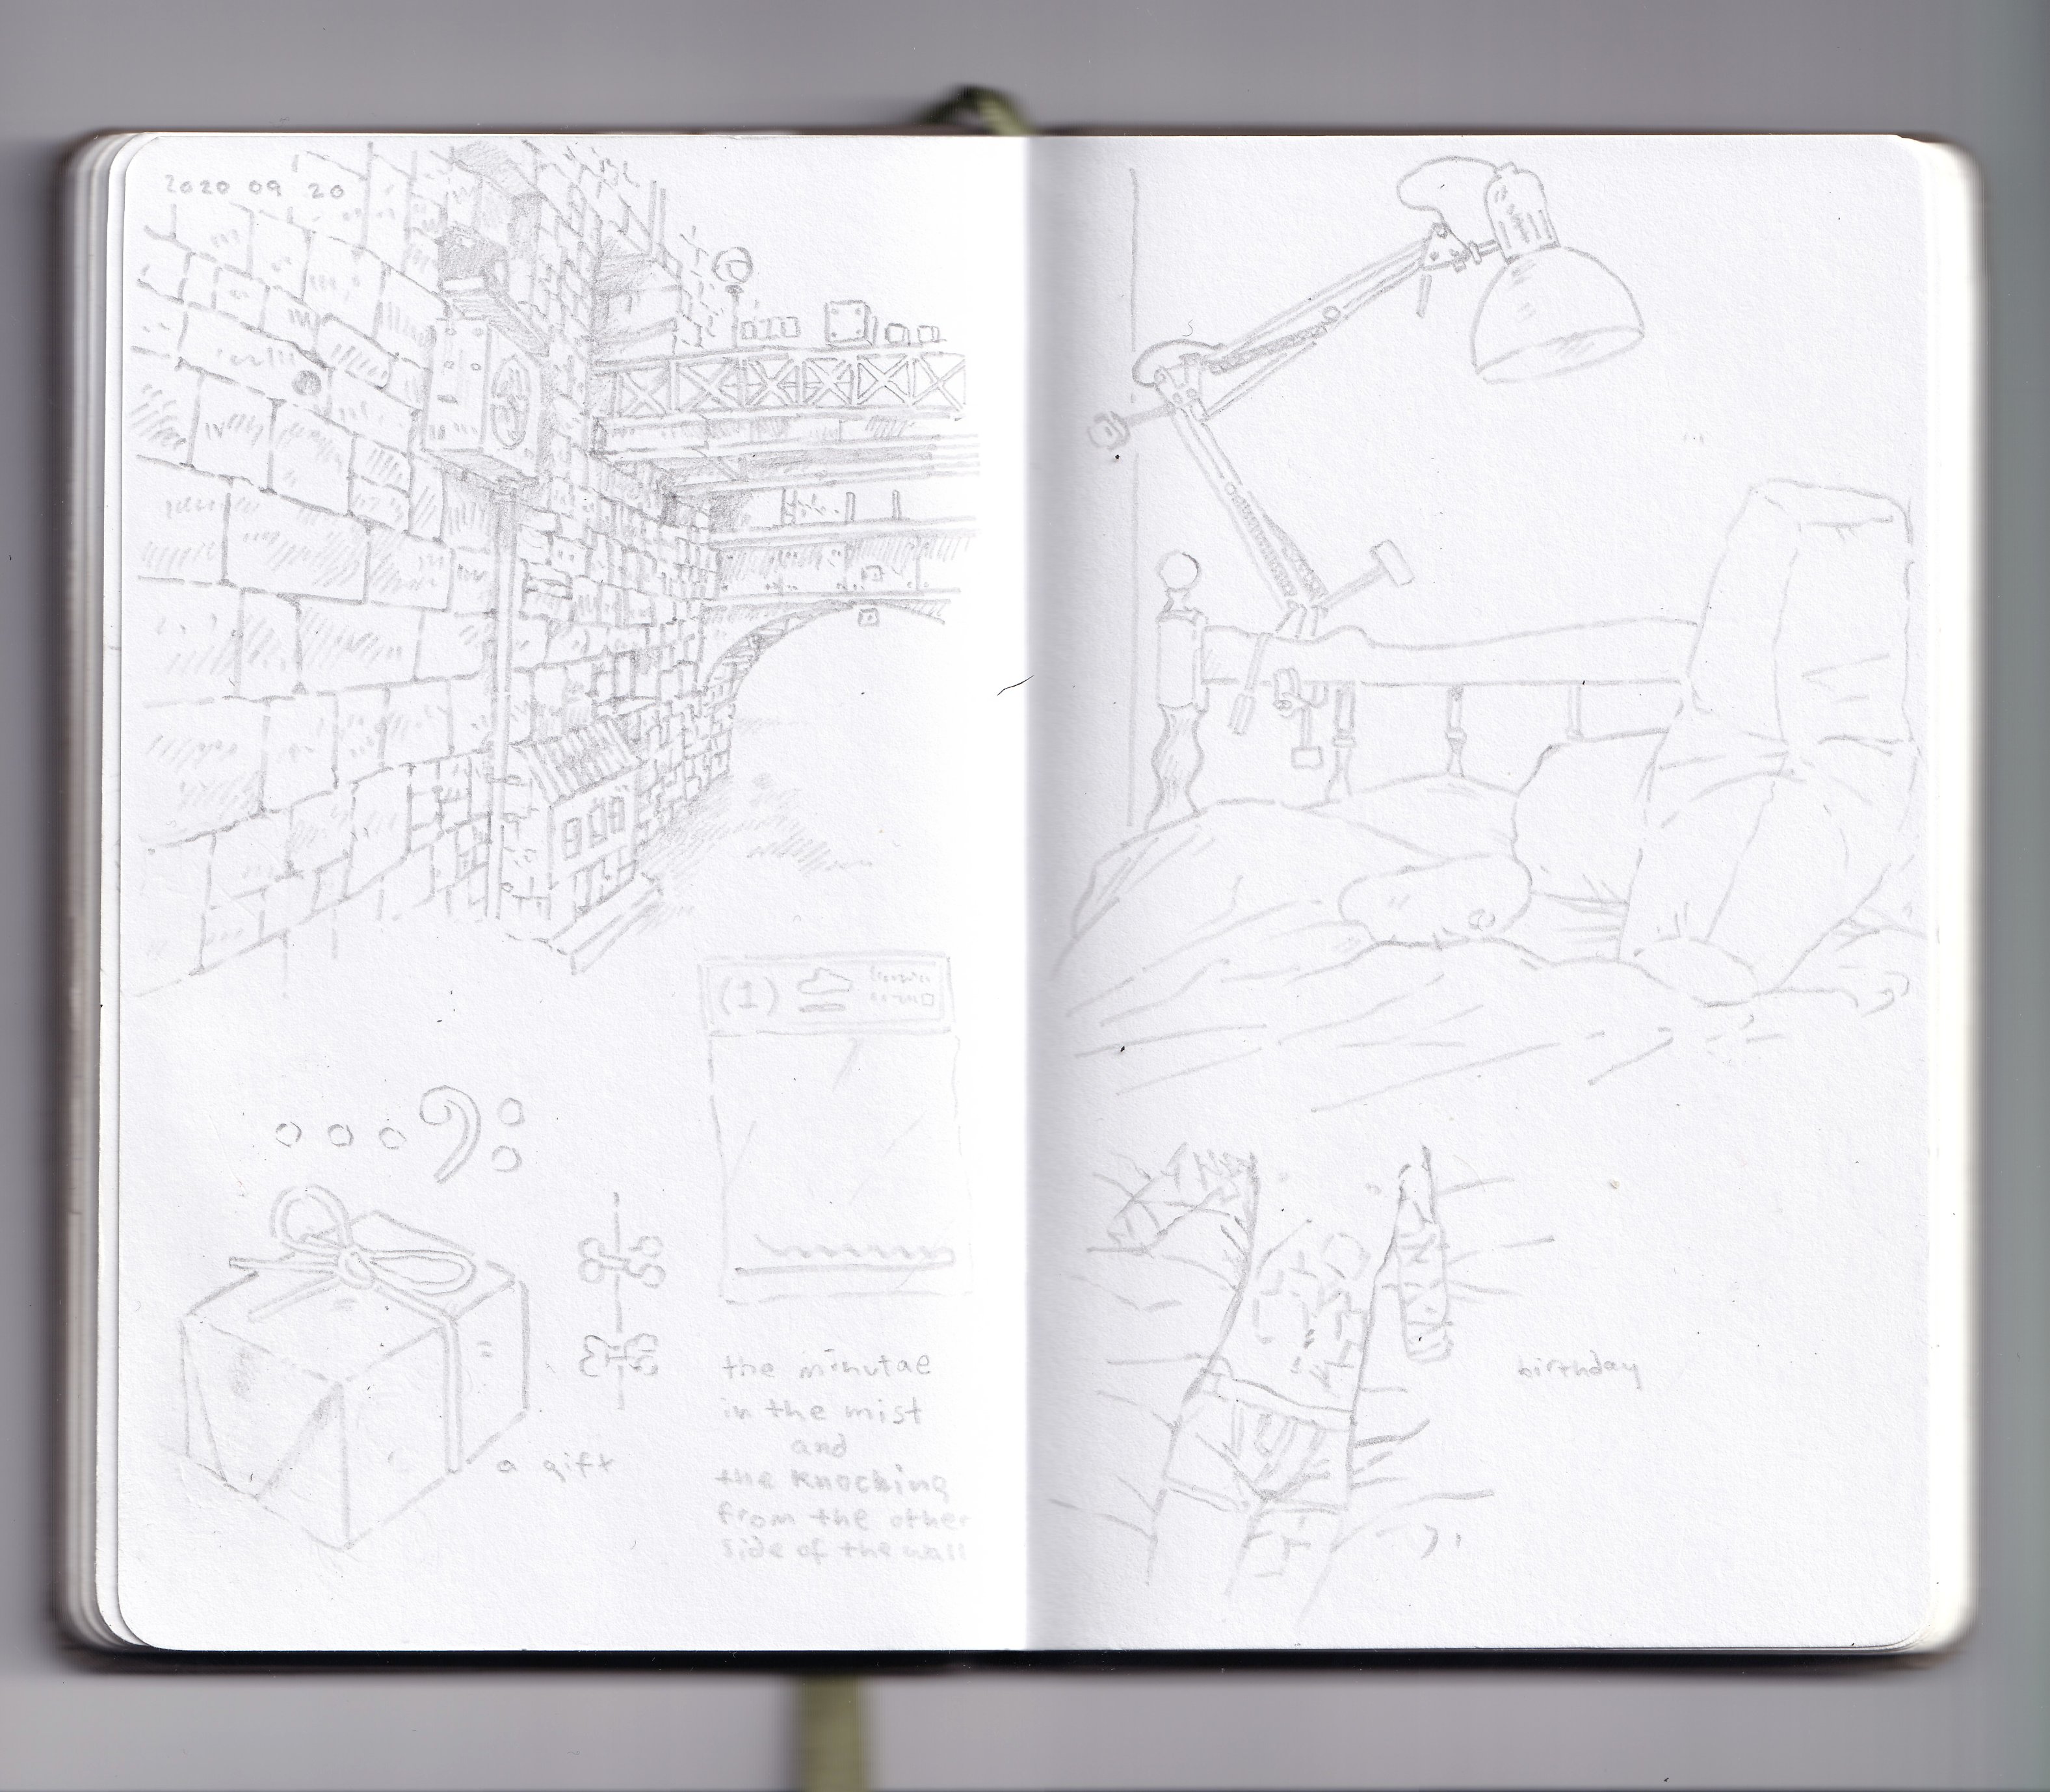 2020 09 20
(1)
a gift
the minutae
in the mist
and
the knocking
from the other
side of the wall
birthday